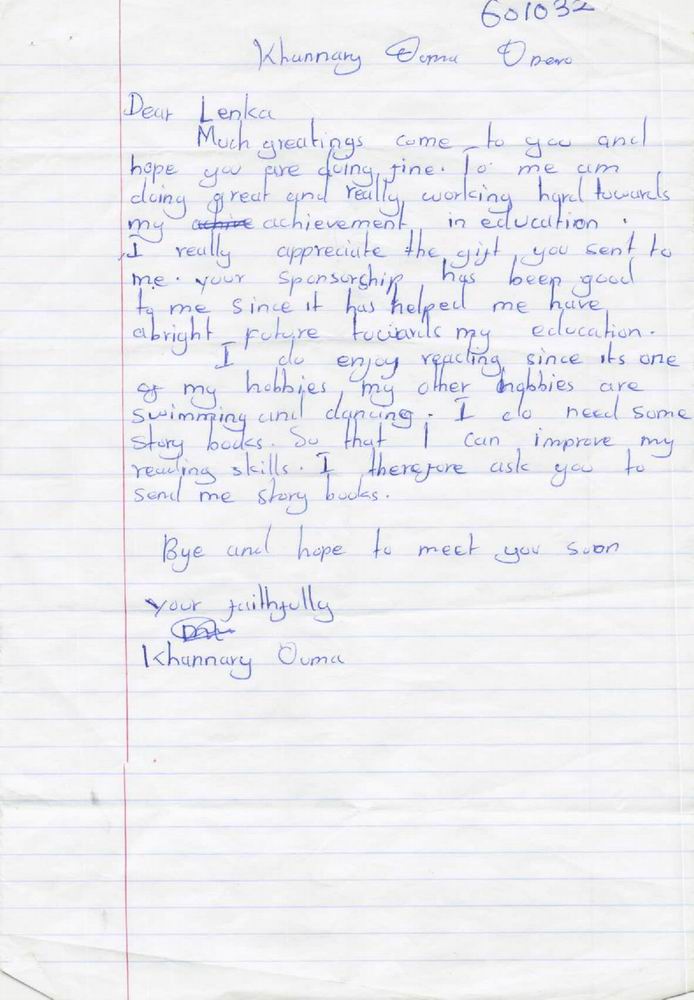 601032
Khannary Ouma Opero
Dear Lenka
Much greatings come to you and
hope you are doing fine. To me am
doing great and really working hard towards
my achive achievement in education.
I really appreciate the gift you sent to
me. your sponsorship has been good
to me since it has helped me have
abright future towards my education.
I do enjoy reading since its one
of my hobbies, my other hobbies are
swimming and dancing. I do need some
story books. So that I can improve my
reading skills. I therefore ask you to
send me story books.
Bye and hope to meet you soon
your faithfully
Khannary Ouma